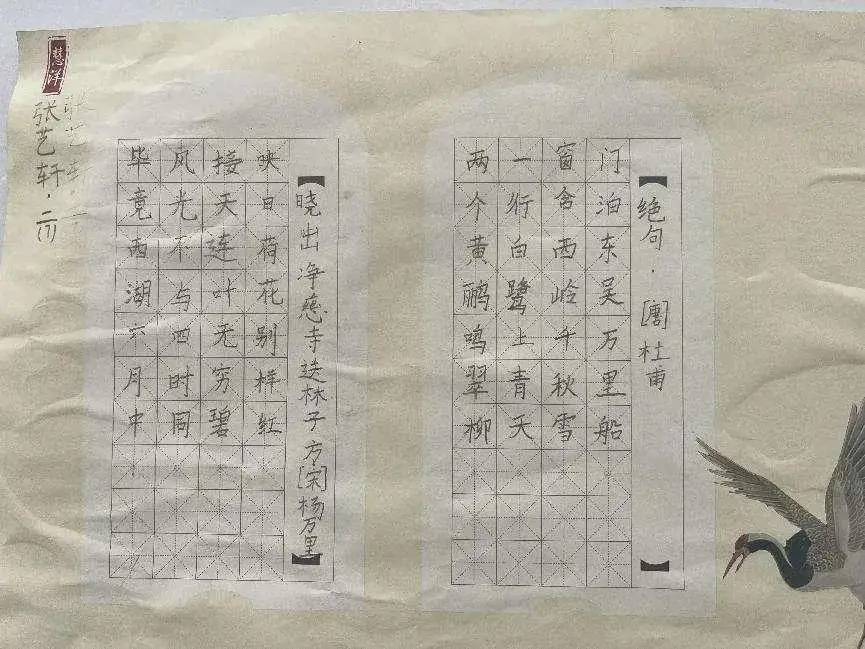 张艺轩
晓出净慈寺送林子方[宋]杨万里
毕竟西湖六月中
风光不与四时同
接天莲叶无穷碧
映日荷花别样红
绝句·[唐]杜甫
两个黄鹂鸣翠柳
一行白鹭上青天
窗含西岭千秋雪
门泊东吴万里船